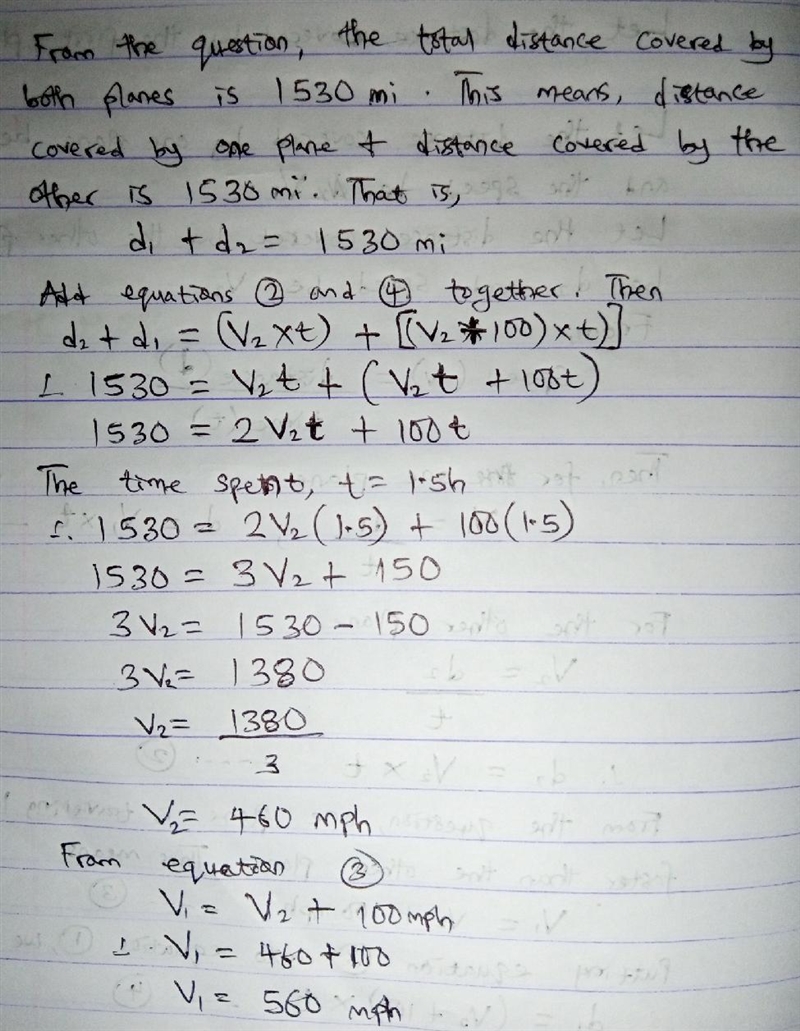 From the question, the total distance covered by
both planes is 1530 mi. This means, distance
covered by one plane + distance covered by the
other is 1530 mi. That is,
d₁ + d₂ = 1530 mi
Add equations ② and ④ together. Then
d₂ + d₁ = (V₂ x t) + [(V₂ + 100) x t)]
∴ 1530 = V₂t + (V₂t + 100t)
1530 = 2V₂t + 100t
The time spent, t = 1.5h
∴ 1530 = 2V₂(1.5) + 100(1.5)
1530 = 3V₂ + 150
3V₂ = 1530 - 150
3V₂ = 1380
V₂ = 1380
3
V₂ = 460 mph
From equation ③
V₁ = V₂ + 100mph
∴ V₁ = 460 + 100
V₁ = 560 mph